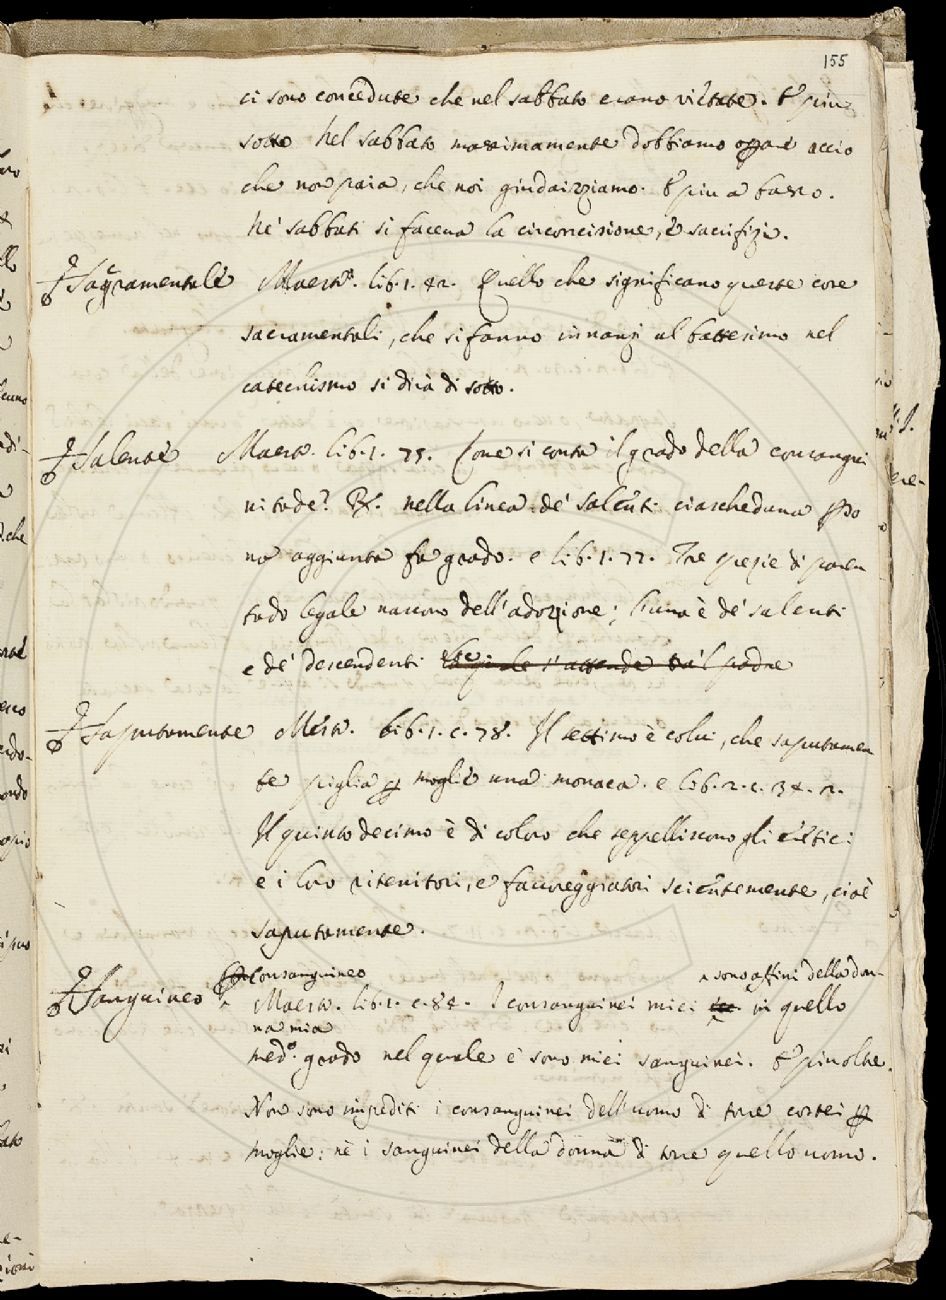 155
ci sono concedute che nel sabbato erano vietate. E più
sotto Nel sabbato massimamente dobbiamo oprare accio
che non paia, che noi giudaizziamo. E più a basso.
Ne' sabbati si faceva la circoncisione, e sacrifizi.
Sagramentale Maestr. lib. 1. 42. Quello che significano queste cose
sacramentali, che si fanno innanzi al battesimo nel
catechismo si dirà di sotto.
Salente Maestr. lib. 1. 75. Come si conta il grado della consangui
nitade? R. nella linea de' salenti ciascheduna perso
na aggiunta fa grado. e lib. 1. 77. Tre spezie di paren
tado legale nascono dell'adozzione; l'una è de' salenti
e de' descendenti la quale s'attende tra 'l padre
Saputamente Mestr. lib. 1. c. 78. Il settimo è colui, che saputamen
te piglia p moglie una monaca. e lib. 2. c. 34. n.
Il quinto decimo è di coloro che seppelliscono gli eretici
e i loro ritenitori, e favoreggiatori scientemente, cioè
saputamente.
consanguineo ^ sono affini della don-
Sanguineo Maestr. lib. 1. c. 84. I consanguinei miei in quello
na mia
med.o grado nel quale e sono miei sanguinei. E più oltre.
Non sono impediti i consanguinei dell'uomo di torre costei p
moglie: nè i sanguinei della donna di torre quello uomo.